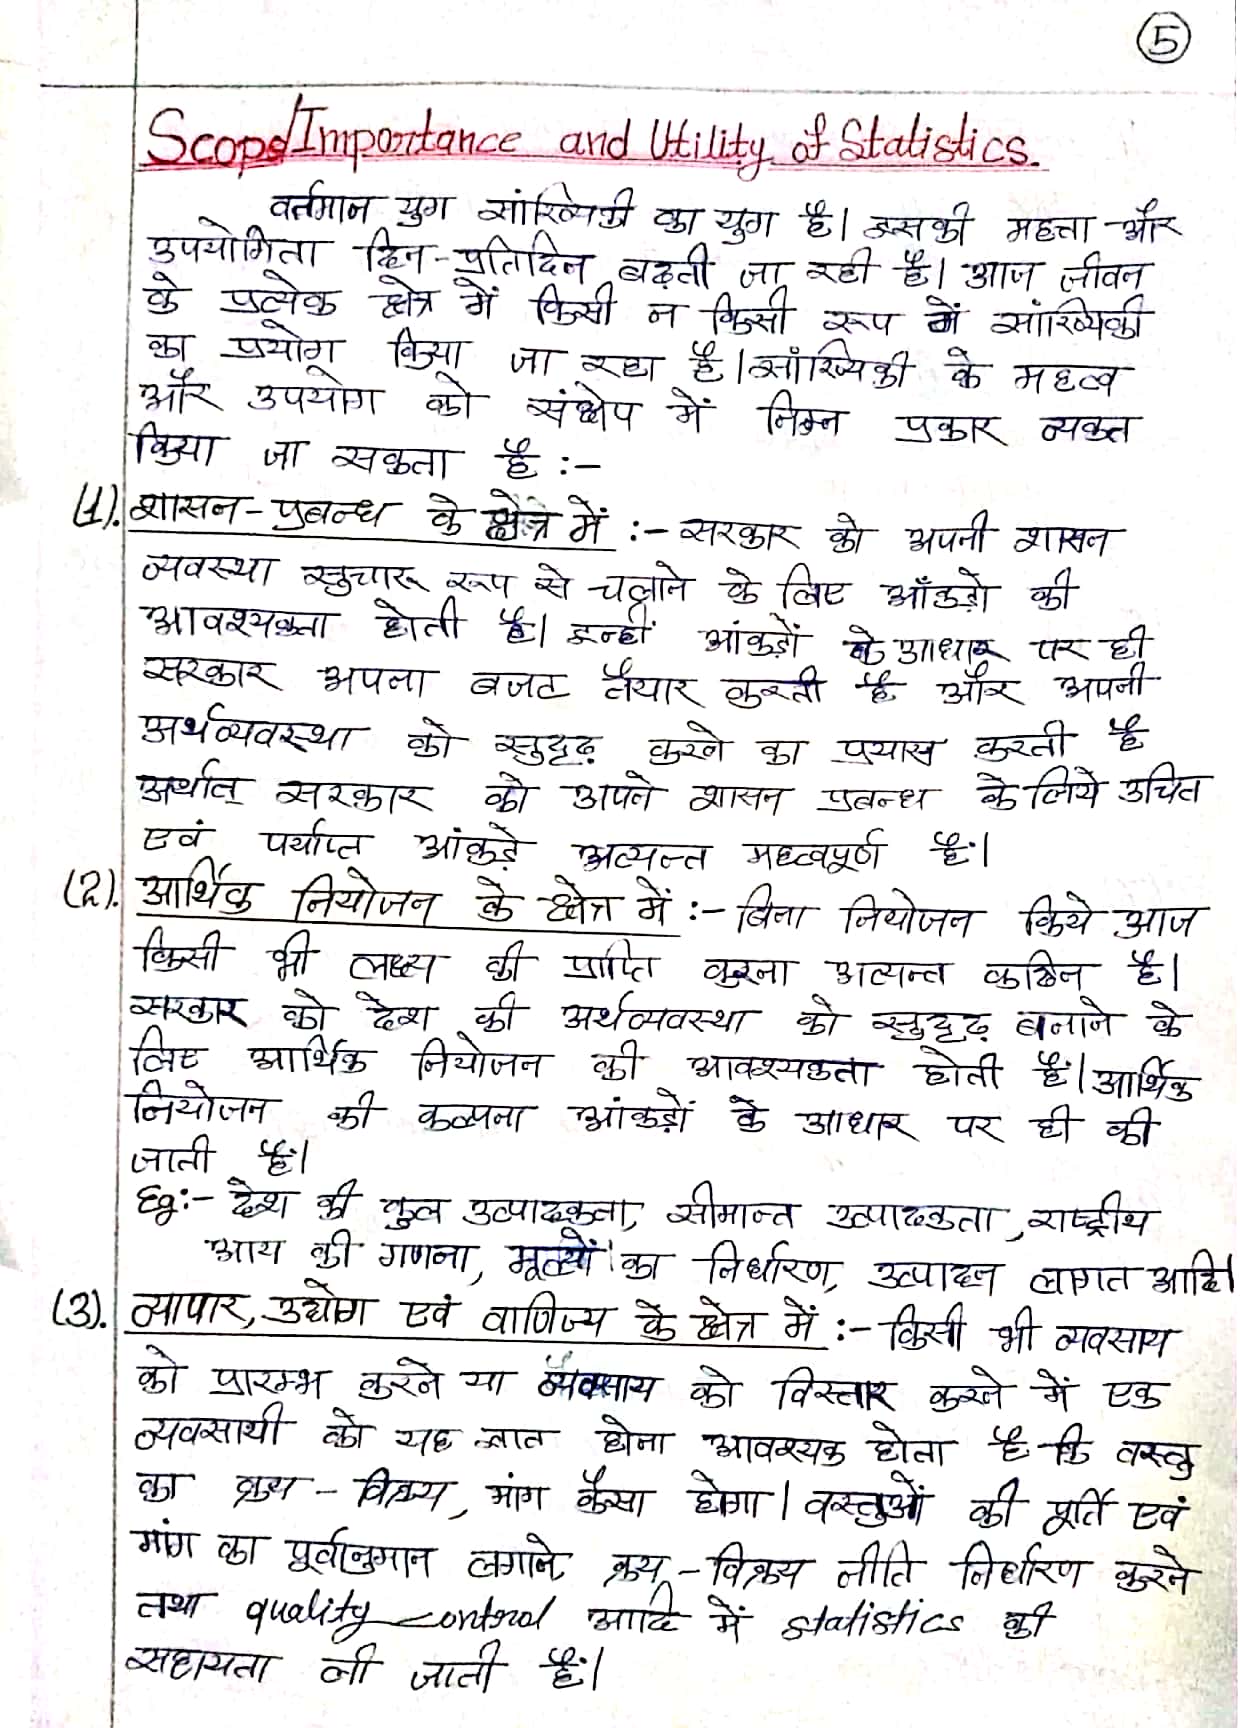 5
Scope/Importance and Utility of Statistics.
वर्तमान युग सांख्यिकी का युग है। इसकी महत्ता और
उपयोगिता दिन-प्रतिदिन बढ़ती जा रही है। आज जीवन
के प्रत्येक क्षेत्र में किसी न किसी रूप में सांख्यिकी
का प्रयोग किया जा रहा है। सांख्यिकी के महत्व
और उपयोग को संक्षेप में निम्न प्रकार व्यक्त
किया जा सकता है :-
(1). शासन-प्रबन्ध के क्षेत्र में :- सरकार को अपनी शासन
व्यवस्था सुचारू रूप से चलाने के लिए आँकड़ो की
आवश्यकता होती है। इन्हीं आंकड़ों के आधार पर ही
सरकार अपना बजट तैयार करती है और अपनी
अर्थव्यवस्था को सुदृढ़ करने का प्रयास करती है
अर्थात् सरकार को अपने शासन प्रबन्ध के लिये उचित
एवं पर्याप्त आंकड़े अत्यन्त महत्वपूर्ण हैं।
(2). आर्थिक नियोजन के क्षेत्र में :- बिना नियोजन किये आज
किसी भी लक्ष्य की प्राप्ति करना अत्यन्त कठिन है।
सरकार को देश की अर्थव्यवस्था को सुदृढ़ बनाने के
लिए आर्थिक नियोजन की आवश्यकता होती हैं। आर्थिक
नियोजन की कल्पना आंकड़ों के आधार पर ही की
जाती हैं।
Eg:- देश की कुल उत्पादकता, सीमान्त उत्पादकता, राष्ट्रीय
आय की गणना, मूल्यों का निर्धारण, उत्पादन लागत आदि।
(3). व्यापार, उद्योग एवं वाणिज्य के क्षेत्र में :- किसी भी व्यवसाय
को प्रारम्भ करने या व्यवसाय को विस्तार करने में एक
व्यवसायी को यह ज्ञात होना आवश्यक होता है कि वस्तु
का क्रय - विक्रय, मांग कैसा होगा। वस्तुओं की पूर्ति एवं
मांग का पूर्वानुमान लगाने, क्रय - विक्रय नीति निर्धारण करने
तथा quality control आदि में statistics की
सहायता ली जाती हैं।